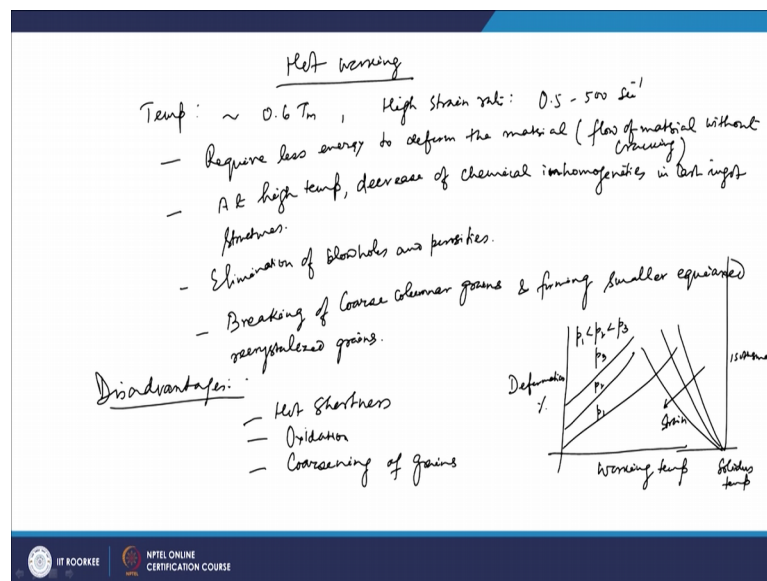 Hot working
Temp: ~ 0.6 Tm , High strain rate: 0.5 - 500 sec⁻¹
— Require less energy to deform the material (flow of material without
cracking)
— At high temp, decrease of chemical inhomogenities in cast ingot
structures.
— Elimination of blowholes and porosities.
— Breaking of coarse columnar grains & forming smaller equiaxed
recrystalized grains.
Disadvantages:
— Hot Shortness
— Oxidation
— Coarsening of grains
p1 < p2 < p3
p3
p2
p1
Deformation
%
Strain
Working temp
Solidus
temp
IIT ROORKEE
NPTEL ONLINE
CERTIFICATION COURSE